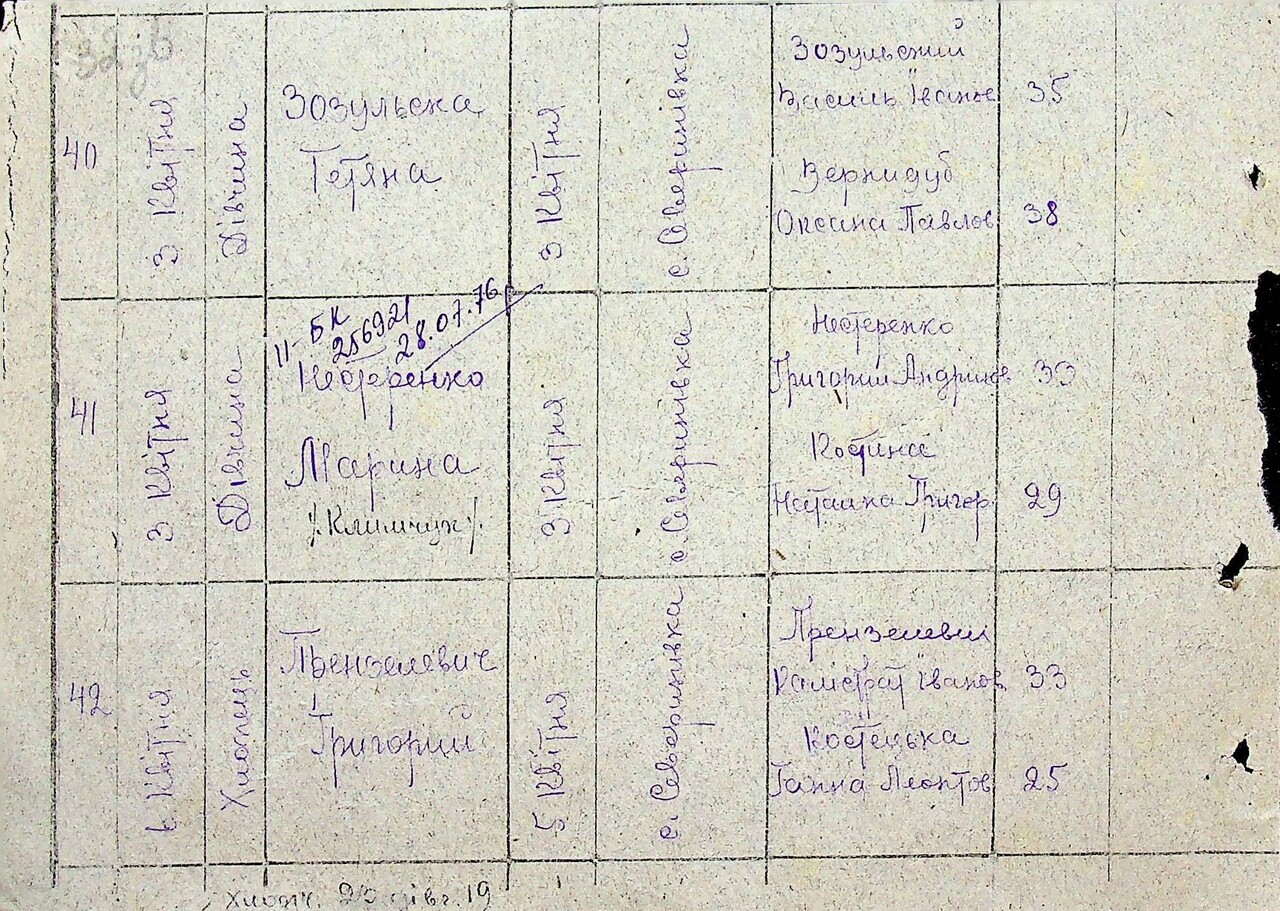 32зв
40
3 Квітня
Дівчина
Зозульска
Тетяна
3 Квітня
с. Северинівка
Зозульский
Василь Іванов
35
Вернидуб
Оксана Павлов
38
41
3 Квітня
Дівчина
II-БК
256921
28.07.76р
Нестеренко
Марина
/Климчук/
3 Квітня
с. Северинівка
Нестеренко
Григорий Андриков
33
Котина
Наталка Григор.
29
42
6 Квітня
Хлопець
Прензелевич
Григорий
5 Квітня
с. Северинивка
Прензелевич
Калістрат Іванов
33
Костецька
Ганна Леонтов
25
Хлопч. 23 дівч. 19